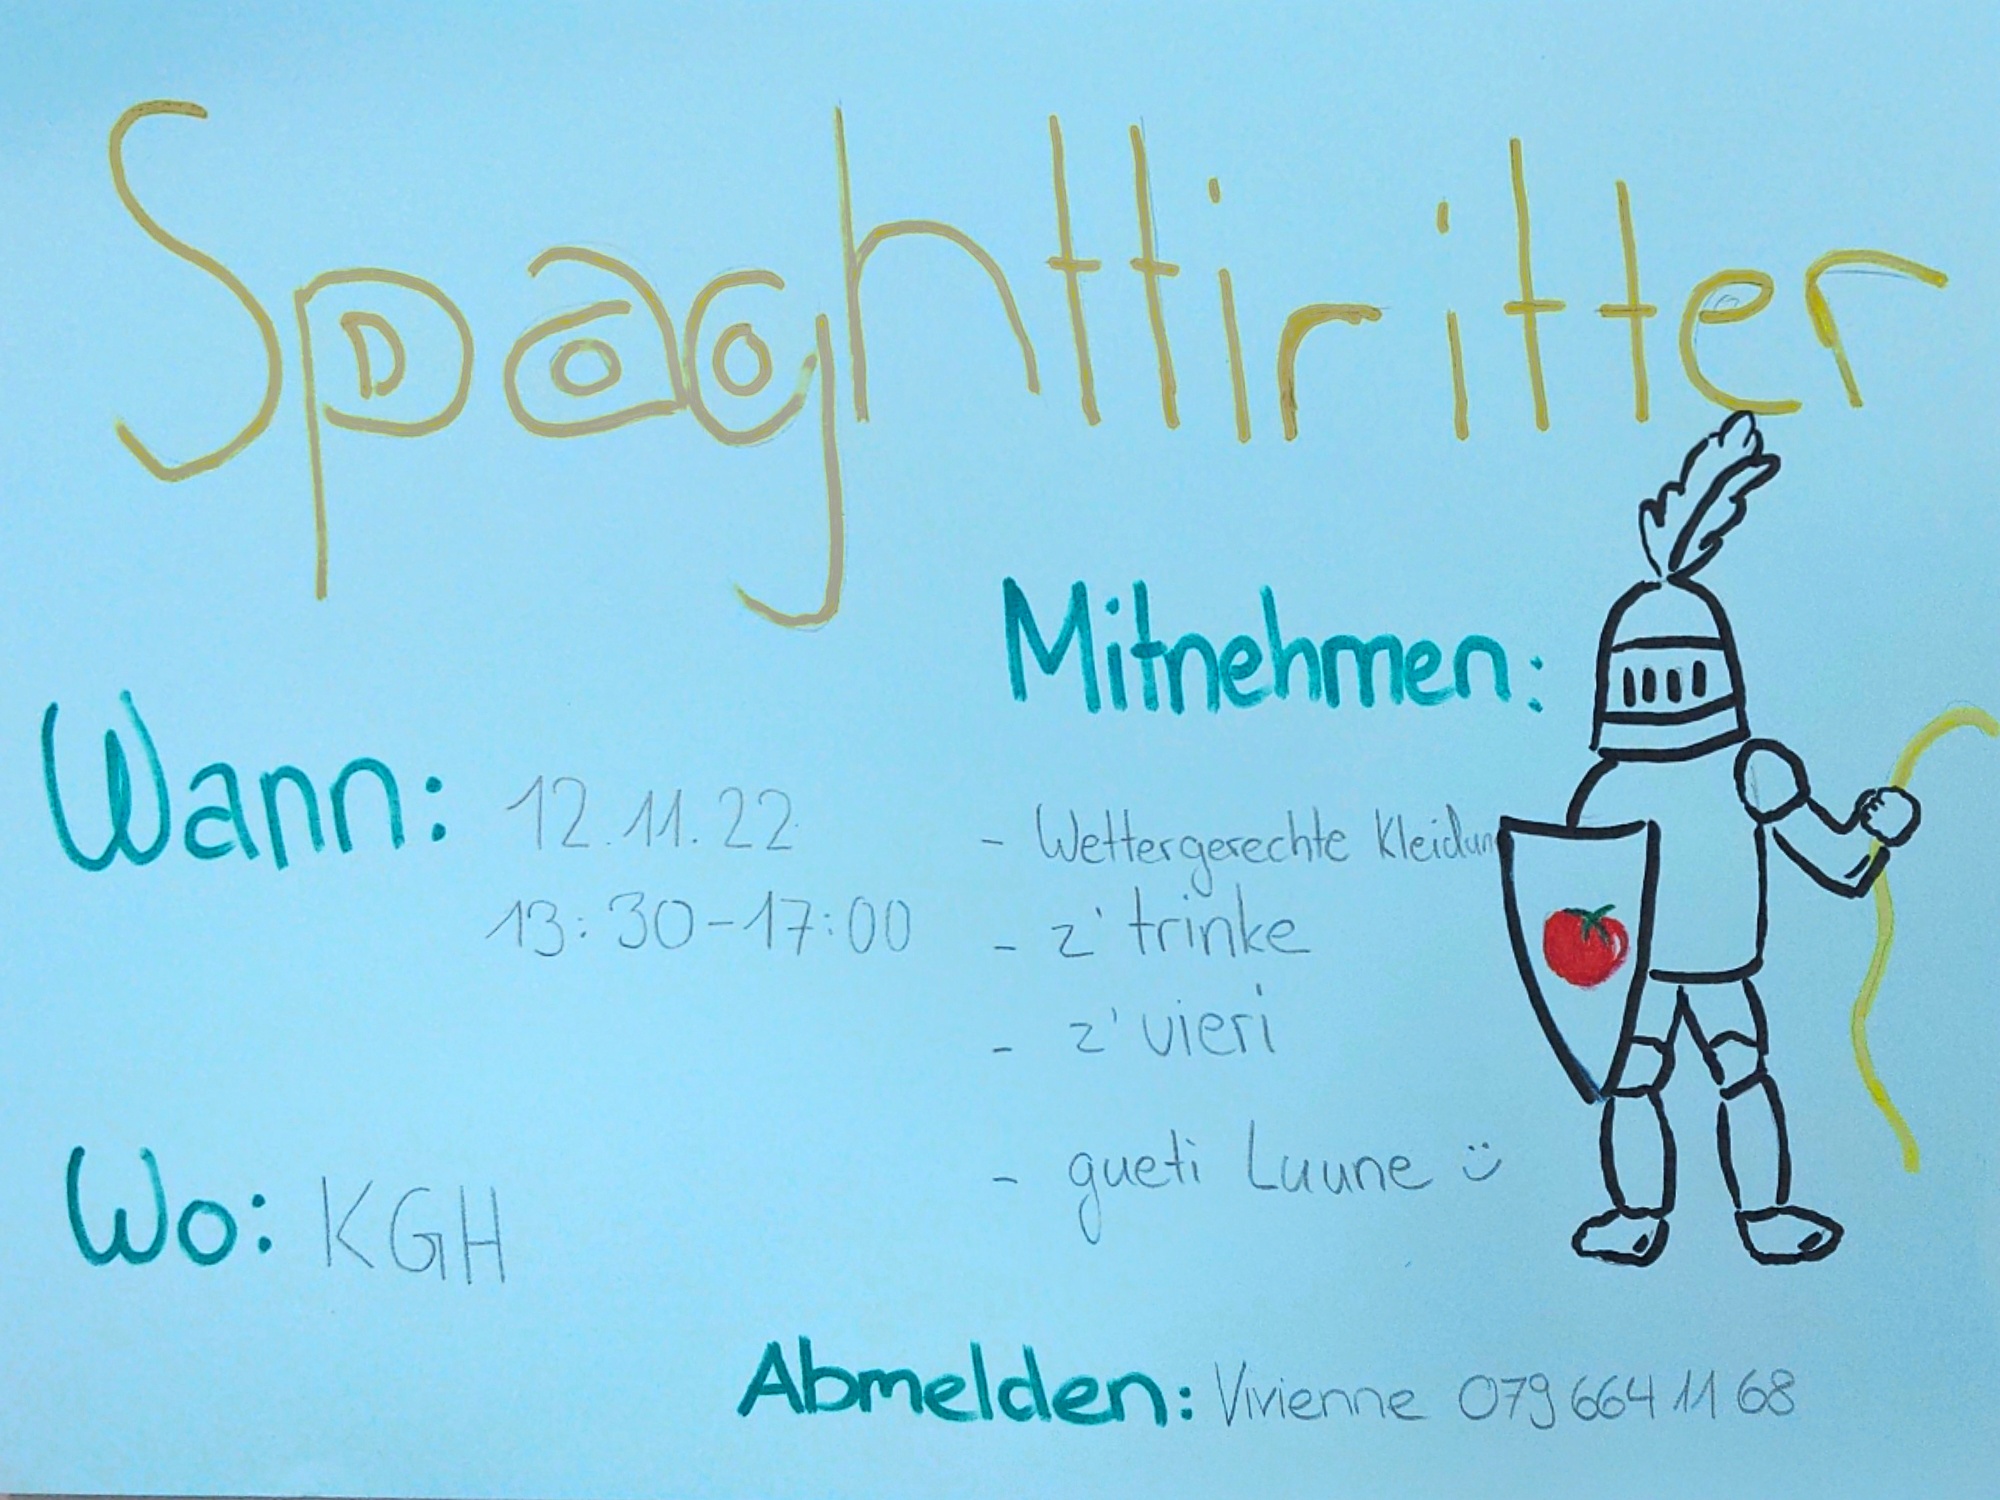 Spaghttiritter
Wann: 12.11.22
13:30-17:00
Wo: KGH
Mitnehmen:
- Wettergerechte Kleidun
- z'trinke
- z'vieri
- gueti Luune :)
Abmelden: Vivienne 079 664 11 68